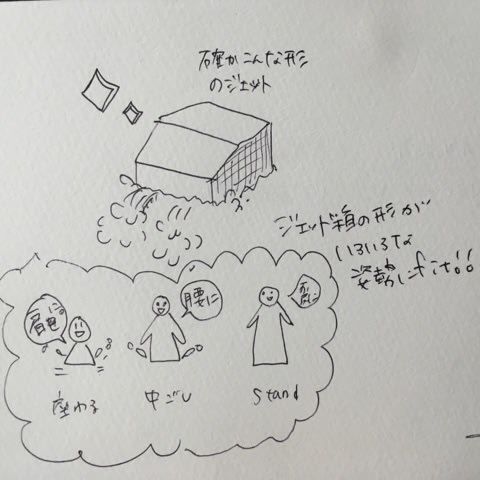 確かこんな形
のジェット
ジェット箱の形が
いろいろな
姿勢にfit!!
肩に。
腰に
座わる
中ごし
Stand